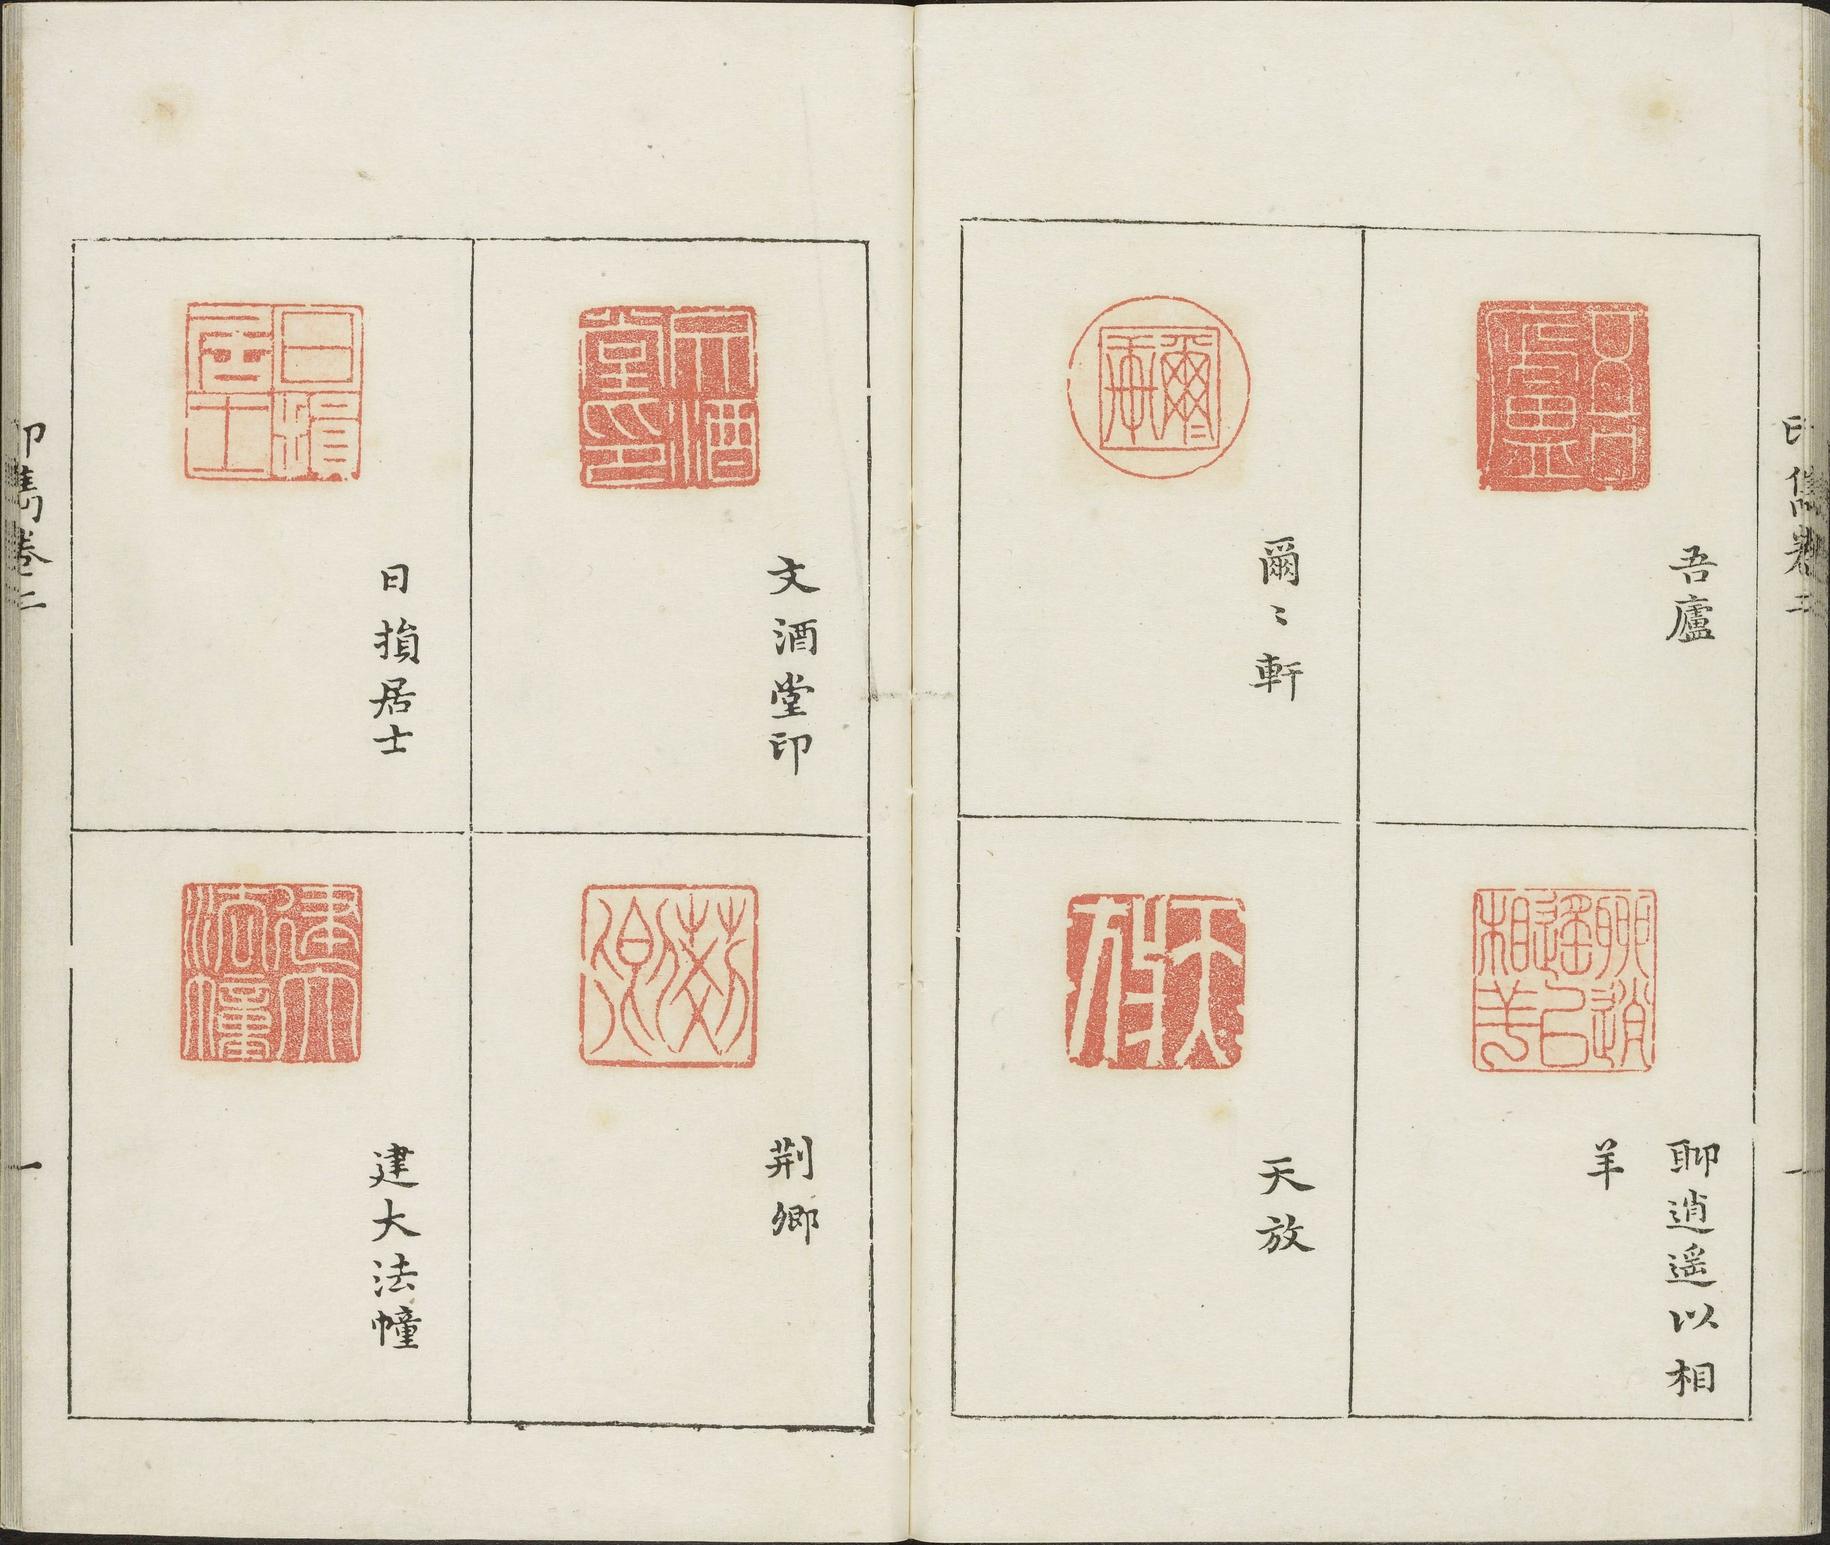 印雋卷二
一
吾廬
聊逍遥以相
羊
爾〻軒
天放
文酒堂印
荆卿
日損居士
建大法幢
印雋卷二
一